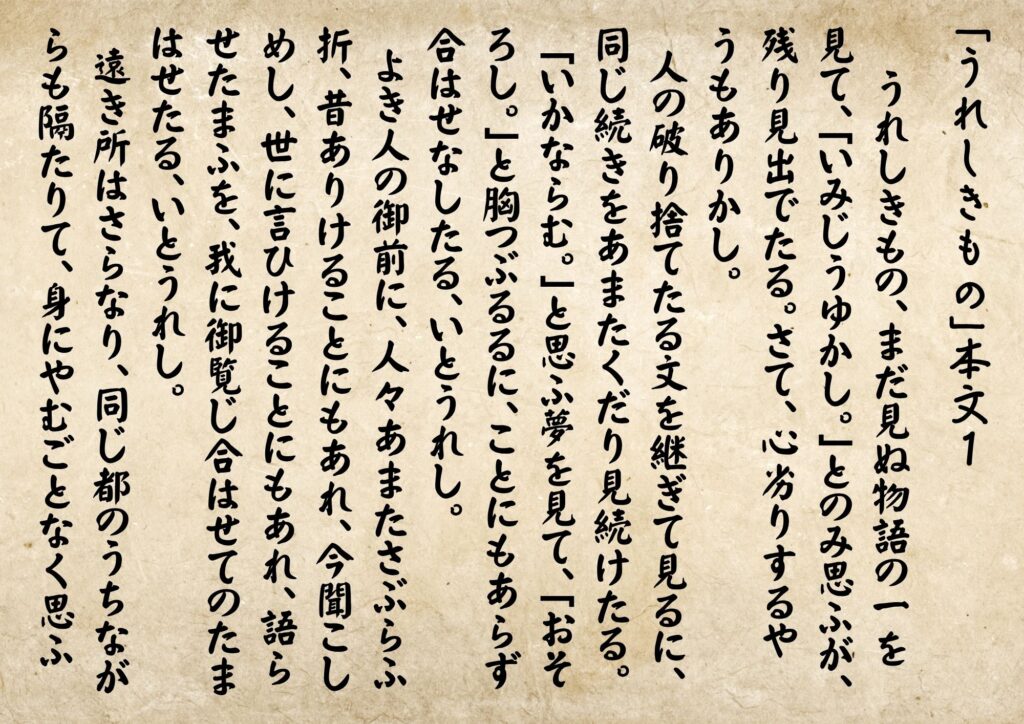 「うれしきもの」本文1
うれしきもの、まだ見ぬ物語の一を
見て、「いみじうゆかし。」とのみ思ふが、
残り見出でたる。さて、心劣りするや
うもありかし。
人の破り捨てたる文を継ぎて見るに、
同じ続きをあまたくだり見続けたる。
「いかならむ。」と思ふ夢を見て、「おそ
ろし。」と胸つぶるるに、ことにもあらず
合はせなしたる、いとうれし。
よき人の御前に、人々あまたさぶらふ
折、昔ありけることにもあれ、今聞こし
めし、世に言ひけることにもあれ、語ら
せたまふを、我に御覧じ合はせてのたま
はせたる、いとうれし。
遠き所はさらなり、同じ都のうちなが
らも隔たりて、身にやむごとなく思ふ